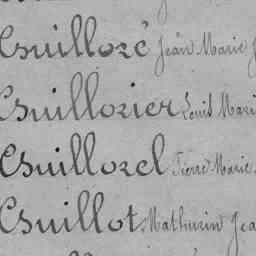 Guillozé Jean Marie
Guillozier Louis Mari
Guillozel Pierre Marie
Guillot Mathurin Jea